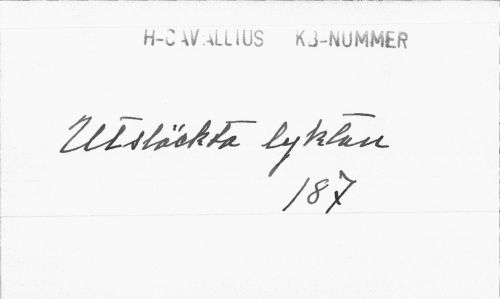 H-CAVALLIUS KB-NUMMER
Utsläckta lyktan
187